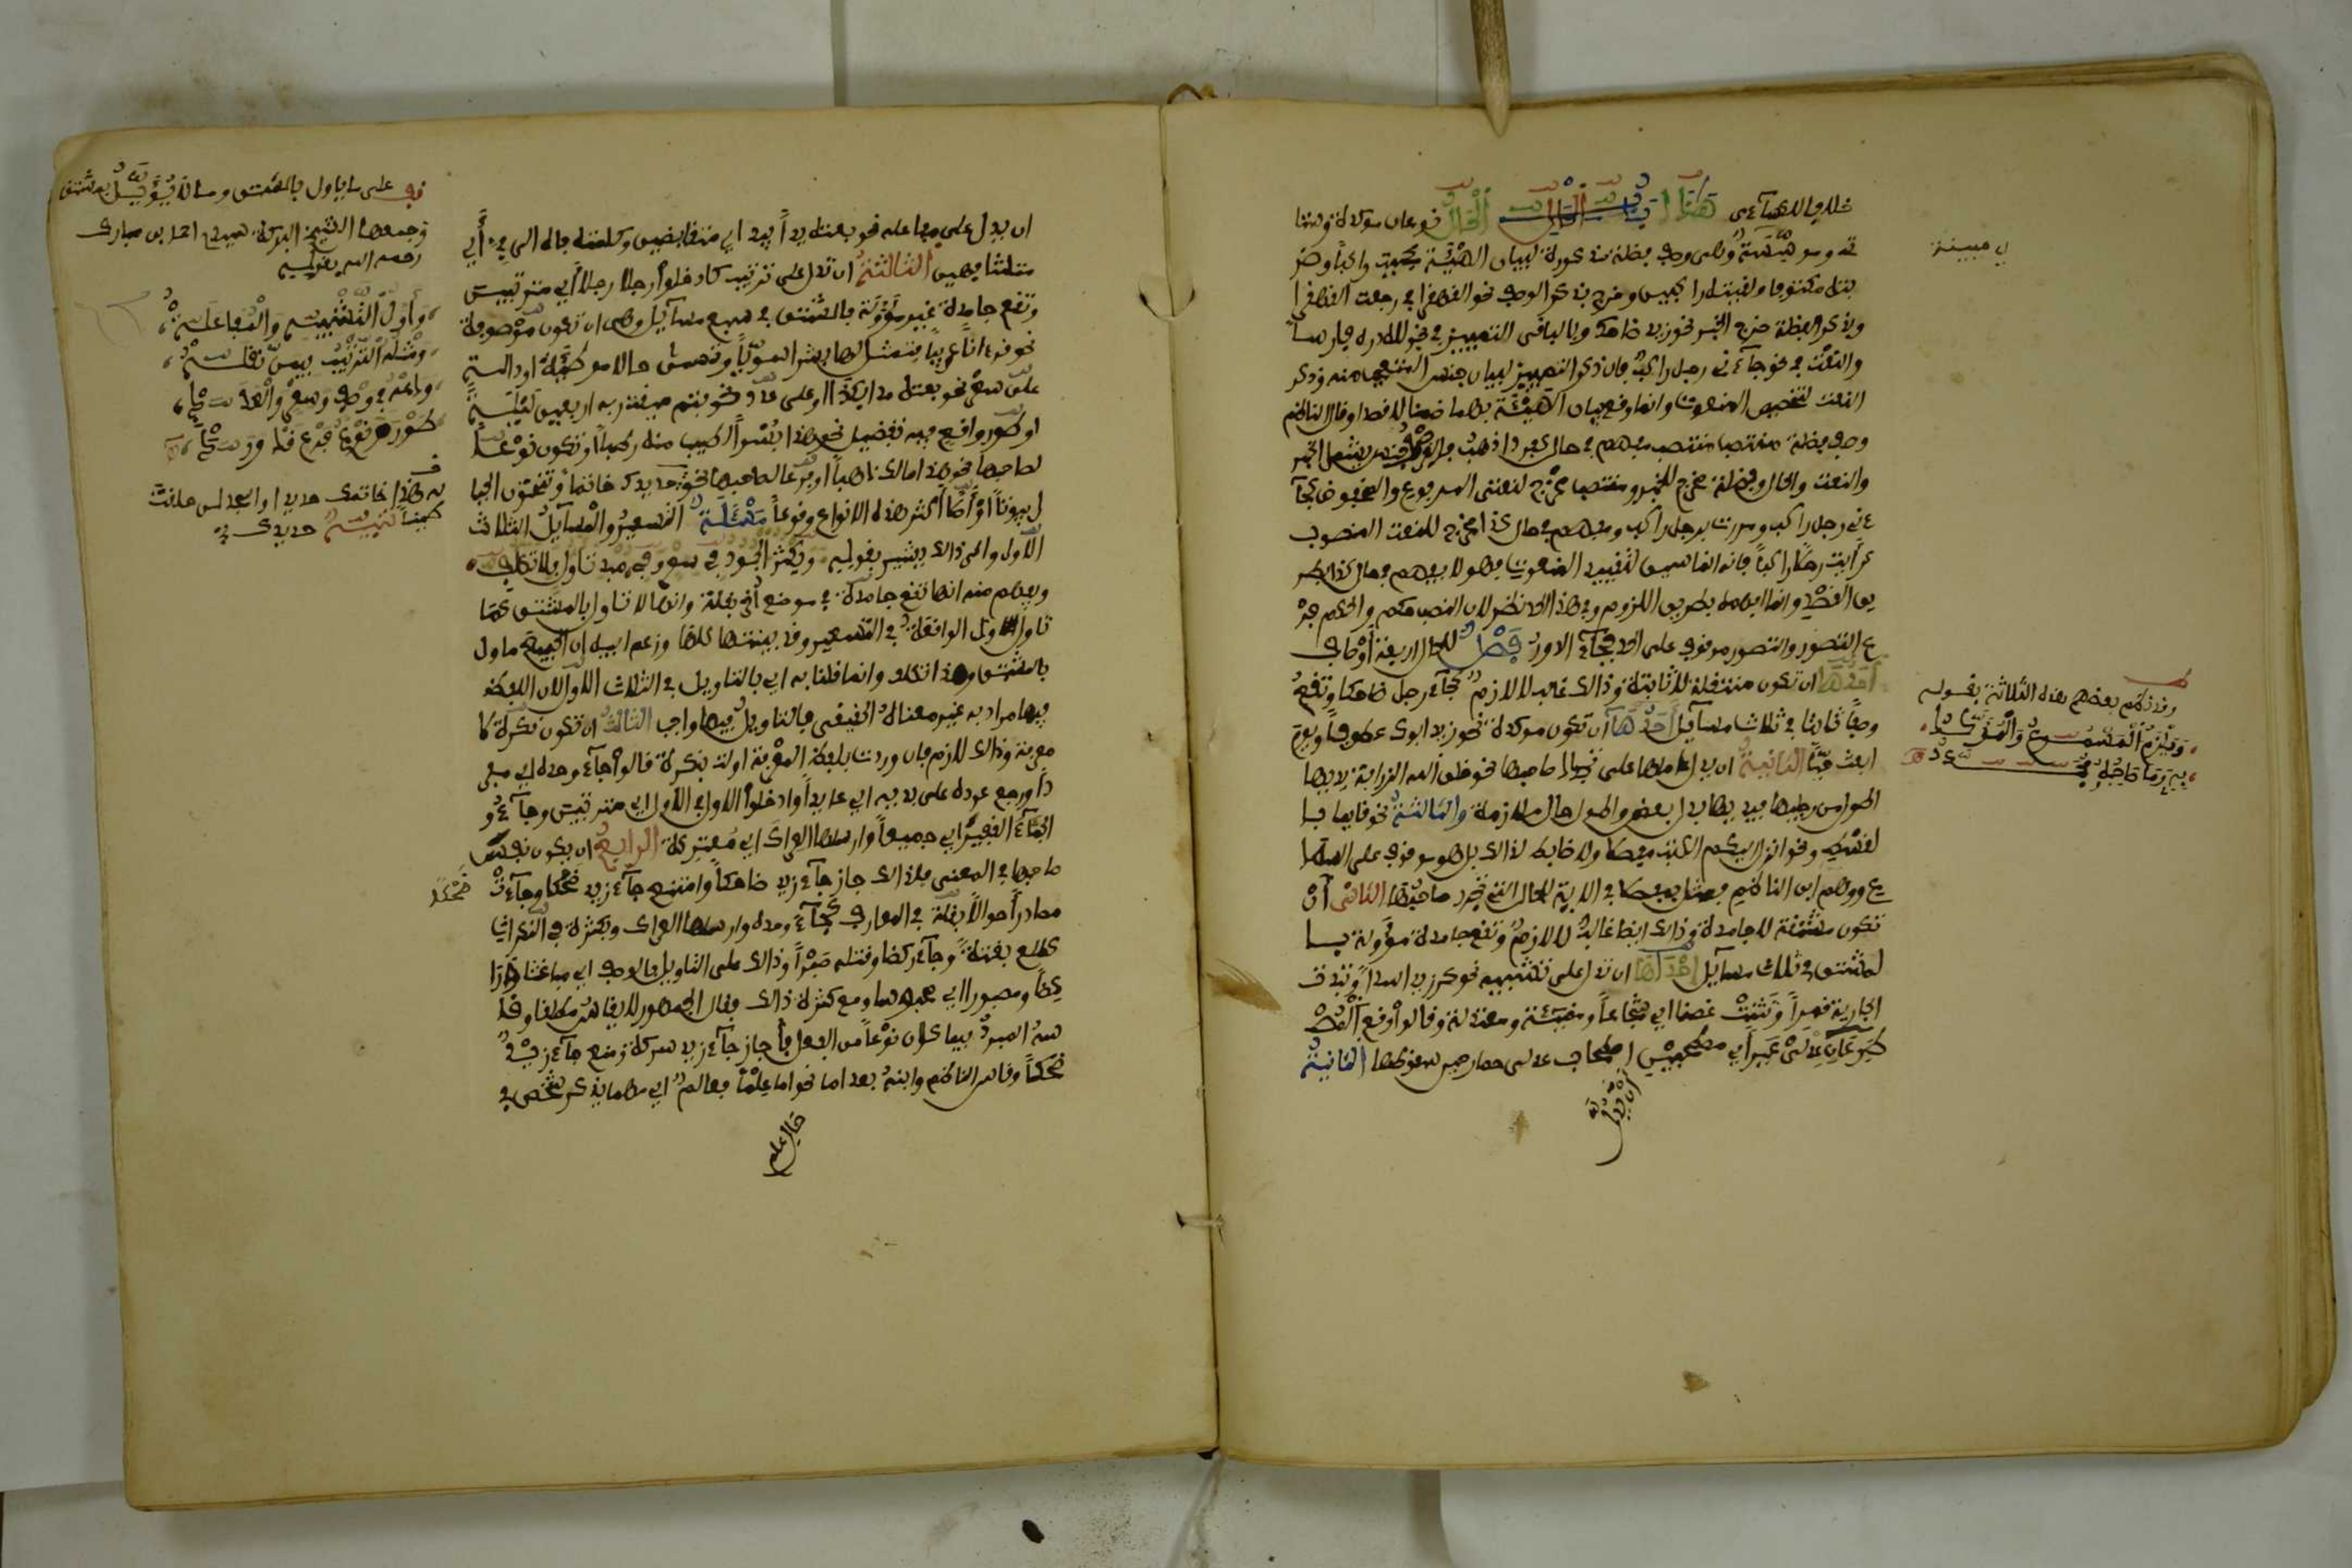 خلافا للكسآءى هذا باب الحال الحال نوعان موكدة وستا
تى وموسسة وهى وصف فضلة مذكورة لبيان الهيئة كجيت راكبا وضر
بته مكتوفا ولقيته راكبين وخرج بذكر الوصف نحو القهقرى فى رجعت القهقرى
وبذكر الفضلة خرج الخبر نحو زيد ضاحك وبالباقى التمييز فى نحو لله دره فارسا
والنعت فى نحو جآءنى رجل راكب فان ذكر التمييز لبيان جنس المتعجب منه وذكر
النعت لتخصيص المنعوت وانما وقع بيان الهيئة بهما ضمنا لا قصدا وقال الناظم
وصف فضلة منتصب مفهم فى حال كفردا اذهب فالوصف جنس يشمل الخبر
والنعت والحال وفضلة مخرج للخبر ومنتصب مخرج لنعتى المرفوع والمخفوض كجآ
ءنى رجل راكب ومررت برجل راكب ومفهم فى حال كذا مخرج للنعت المنصوب
كرأيت رجلا راكبا فانه انما سيق لتقييد المنعوت فهو لا يفهم فى حال كذا بطر
يق القصد وانما افهمه بطريق اللزوم وفى هذا الحد نظر لان النصب حكم والحكم فر
ع التصور والتصور موقوف على الحد فجآء الدور فصل للحال اربعة اوصاف
احدها ان تكون منتقلة لا ثابتة وذالك غالب لا لازم كجآء رجل ضاحكا وتقع
وصفا ثابتا فى ثلاث مسآيل احدها ان تكون موكدة نحو زيد ابوك عطوفا ويوم
ابعث حيا الثانية ان يدل عاملها على تجدد صاحبها نحو خلق الله الزرافة يديها
اطول من رجليها فيديها بدل بعض واطول حال ملازمة والثالثة نحو قايما با
لقسط ونحو انزل اليكم الكتب مفصلا ولا ضابط لذالك بل هو موقوف على السما
ع ووهم ابن الناظم فمثل بمفصلا فى الاية للحال التى تجدد صاحبها الثانى ان
تكون مشتقة لا جامدة وذالك ايضا غالب لا لازم وتقع جامدة مؤولة با
لمشتق فى ثلاث مسآيل احدها ان تدل على تشبيه نحو كر زيد اسدا وبدت
الجارية قمرا وتثنت غصنا اى شجاعا ومضيئة ومعتدلة وقالوا وقع المصط
حبان عدلى عير اى مصطحبين اصطحاب عدلى حمار حين سقوطهما الثانية
ان تدل
اى مبينة
وقد نظم بعضهم هذه الثلاثة بقوله
ويلزم المسموع والمؤكدا
ان يدل على مفاعلة نحو بعته يدا بيد اى متقابضين وكلمته فاه الى فى اى
متشافهين الثالثة ان تدل على ترتيب كادخلوا رجلا رجلا اى مترتبين
وتقع جامدة غير مؤولة بالمشتق فى سبع مسآيل وهى ان تكون موصوفة
نحو قرءانا عربيا فتمثل لها بشرا سويا وتسمى حالا موطئة او دالة
على سعر نحو بعته مدا بكذا او على عدد نحو فتم ميقت ربه اربعين ليلة
او طور واقع فيه تفضيل نحو هذا بسرا اطيب منه رطبا او تكون نوعا
لصاحبها نحو هذا مالك ذهبا او فرعا لصاحبها نحو حديدك خاتما وتنحتون الجبا
ل بيوتا او اصلا
الاول والى ذالك يشير بقوله ويكثر الجمود فى سعر وفى مبدى تاول بلا تكلف
ويفهم منه انها تقع جامدة فى موضع اخر بقلة وانها لا تاول بالمشتق كما
لا تاول الواقعة فى التسعير وقد بينتها كلها وزعم ابنه ان الجميع ماول
بالمشتق وهذا تكلف وانما قلنا به اى بالتاويل فى الثلاث الاول لان اللفظ
فيها مراد به غير معناه الحقيقى فالتاويل فيها واجب الثالث ان تكون نكرة لا
معرفة وذالك لازم فان وردت بلفظ المعرفة اولت بنكرة قالوا جآء وحده اى منفر
دا ورجع عوده على بدءه اى عايدا وادخلوا الاول فالاول اى مترتبين وجآءو
الجمآء الغفير اى جميعا وارسلها العراك اى معتركة الرابع ان تكون نفس
صاحبها فى المعنى فلذالك جاز جآء زيد ضاحكا وامتنع جآء زيد ضحكا وجآءت
مصادر احوالا بقلة فى المعارف كجآء وحده وارسلها العراك وبكثرة فى النكرات
كطلع بغتة وجآء ركضا وقتله صبرا وذالك على التاويل بالوصف اى مباغتا وراا
كضا ومصبورا اى محبوسا ومع كثرة ذالك فقال الجمهور لا ينقاس مطلقا وقا
سه المبرد فيما كان نوعا من الفعل فاجاز جآء زيد سرعة ومنع جآء زيد
ضحكا وقاس الناظم وابنه بعد اما نحو اما علما فعالم اى مهما يذكر شخص فى
حال علم
ضحكا
قف على ما ياول بالمشتق ومالا يؤول بمشتق
وجمعها الشيخ البركة سيدى احمد بن مبارك
رحمه الله بقوله
واول التشبيه والمفاعله
ومثله الترتيب
وامنع فى وصف وسعر والعدد
طور فرع نوع
هذا خاتمك حديدا
تنبيه